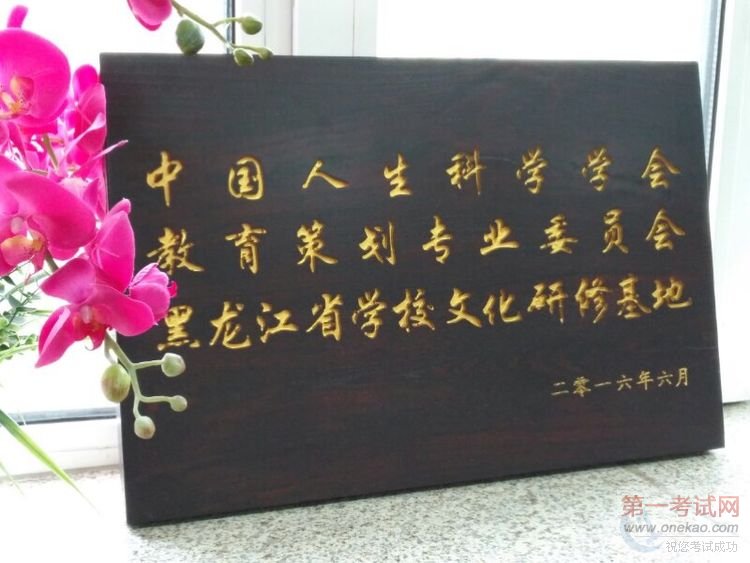 中国人生科学学会
教育策划专业委员会
黑龙江省学校文化研修基地
二零一六年六月
第一考试网
www.onekao.com
祝您考试成功